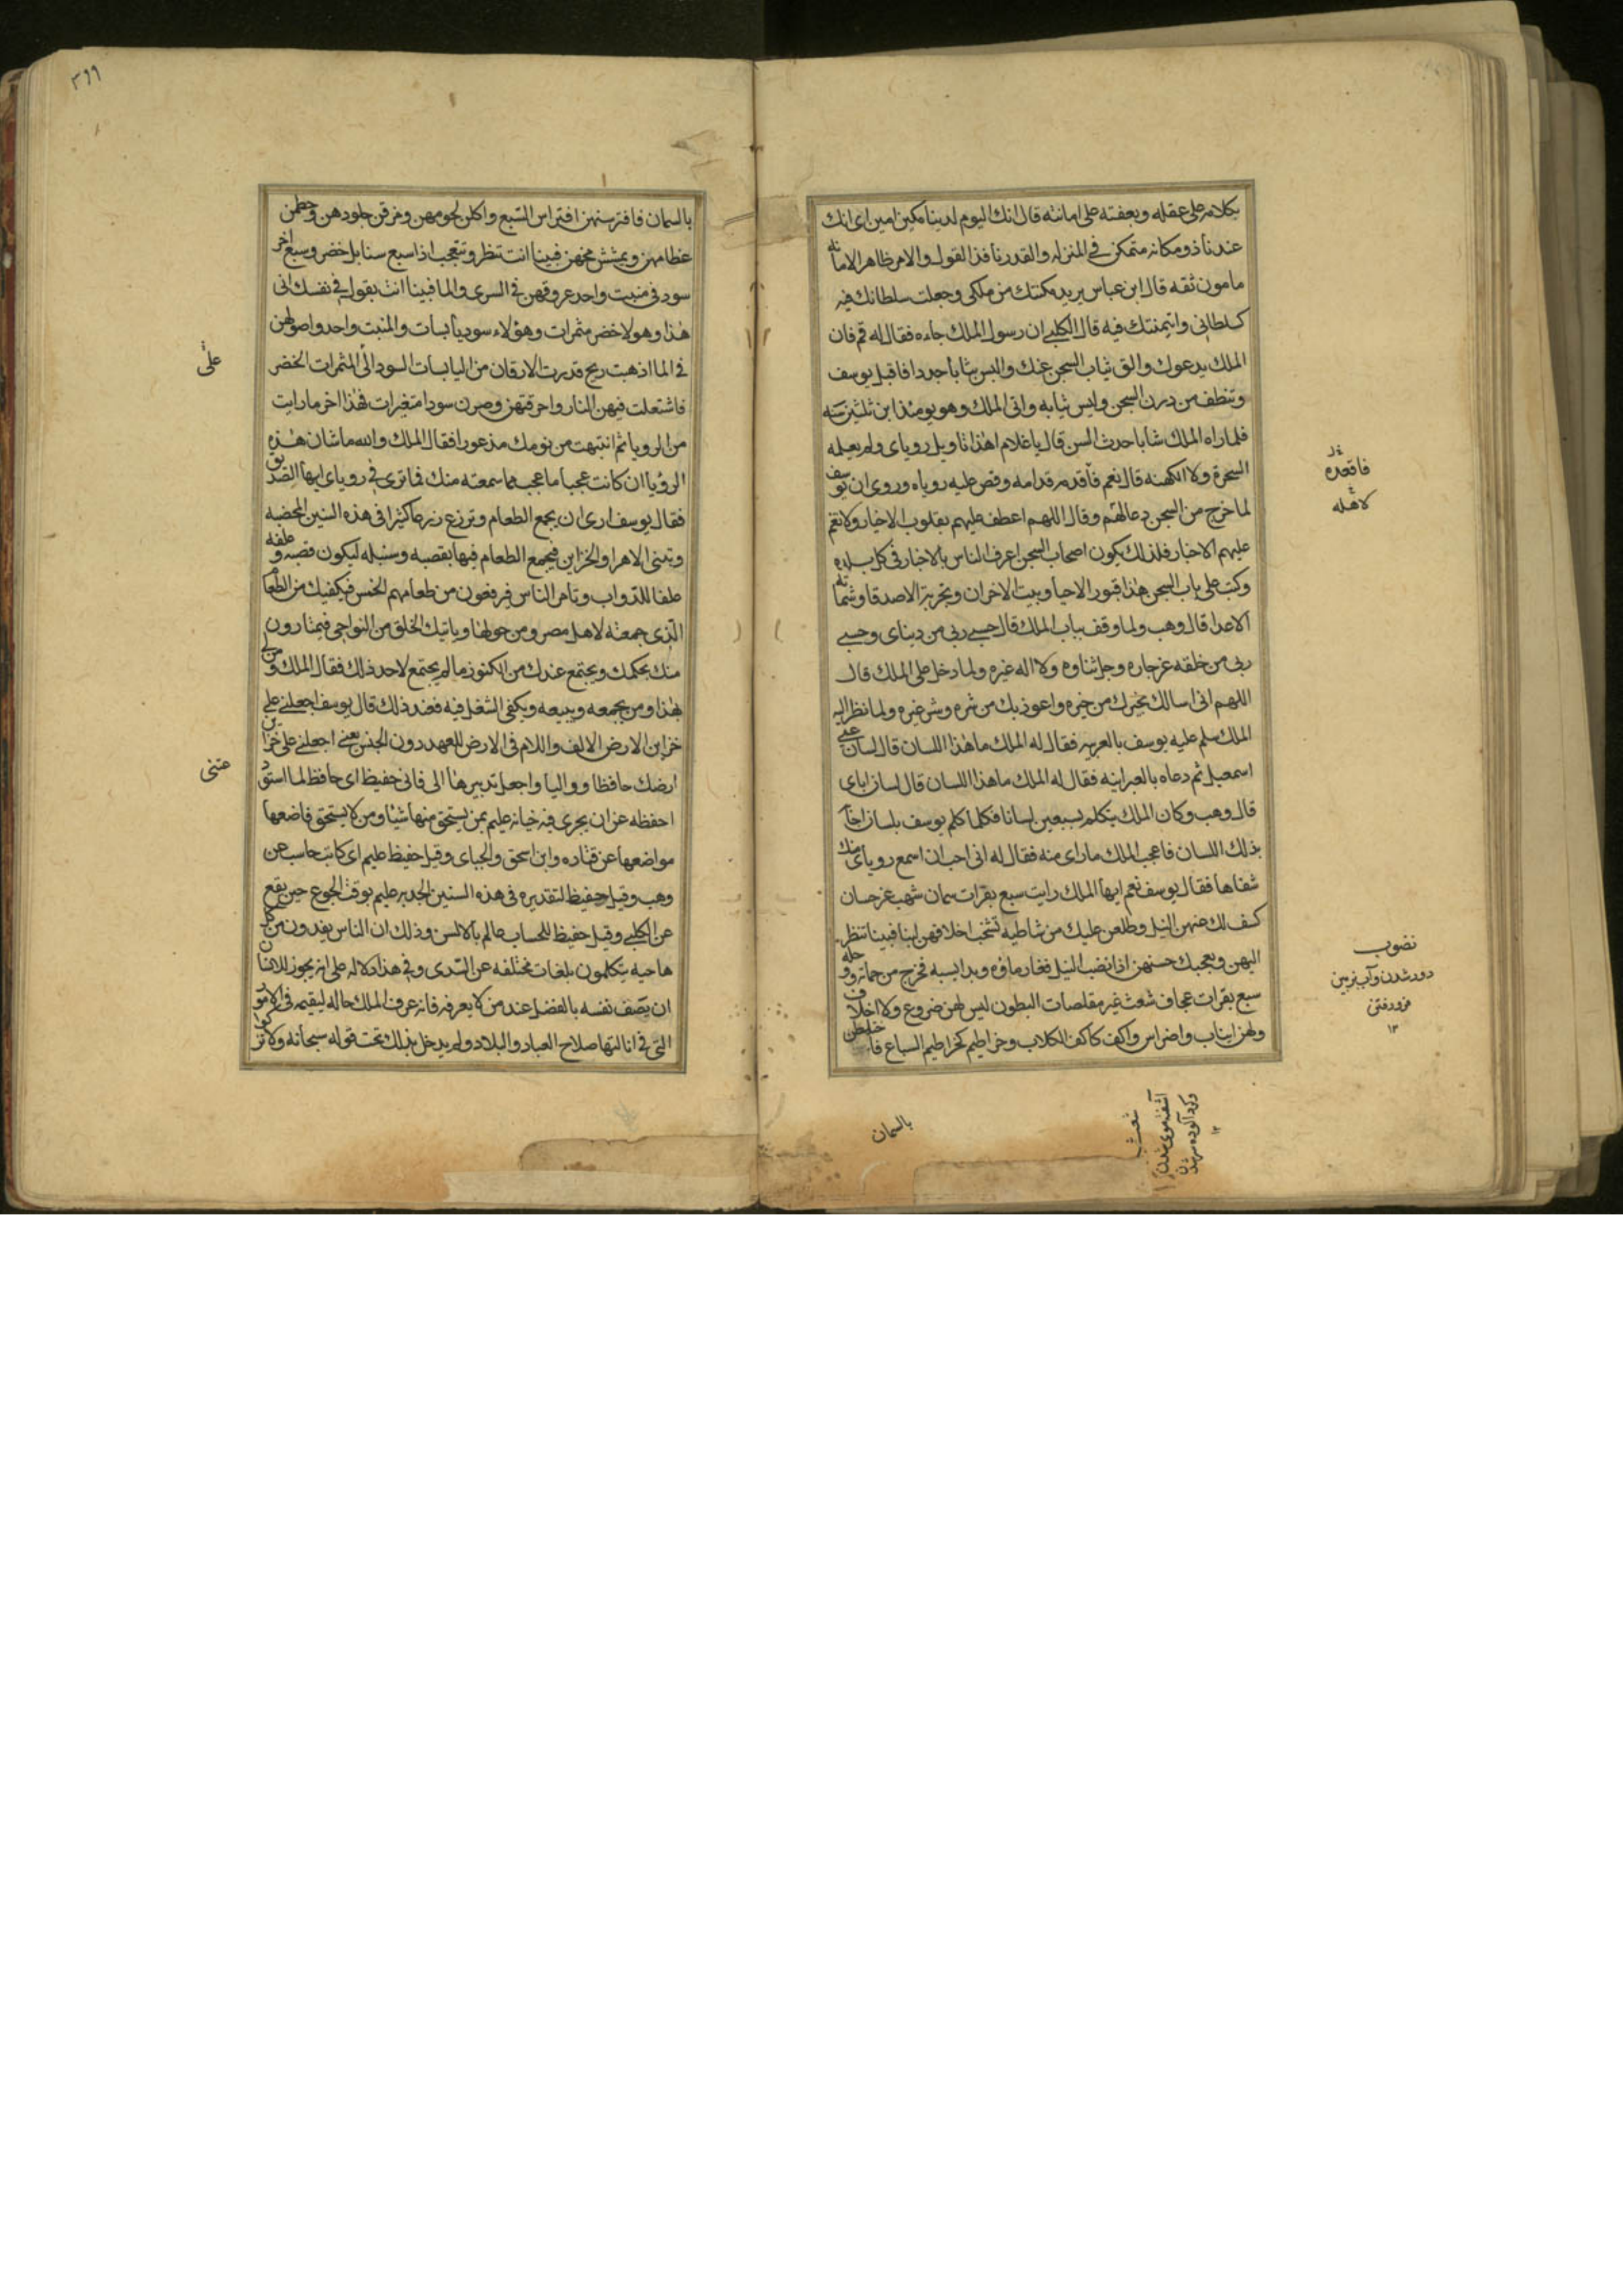 بكلامه على عقله وبعفته على امانته قال انك اليوم لدينا مكين امين اى انك
عندنا ذو مكانه متمكن فى المنزله والقدر نافذ القول والامر ظاهر الامانه
مامون ثقه قال ابن عباس يريد مكنتك من ملكى وجعلت سلطانك فيه
كسلطانى وايتمنتك فيه قال الكلبى ان رسول الملك جاءه فقال له قم فان
الملك يدعوك والق ثياب السجن عنك والبس ثيابا جددا فاقبل يوسف
وتنظف من درن السجن ولبس ثيابه واتى الملك وهو يومئذ ابن ثلثين سنه
فلما راه الملك شابا حدث السن قال يا غلام اهذا تاويل روياى ولم يعلمه
السحرة ولا الكهنه قال نعم فاقدمه قدامه وقص عليه روياه وروى ان يوسف
لما خرج من السجن دعا لهم وقال اللهم اعطف عليهم بقلوب الاخيار ولا تغم
عليهم الاخبار فلذلك يكون اصحاب السجن اعرف الناس بالاخبار فى كل بلده
وكتب على باب السجن هذا قبور الاحيا وبيت الاحزان وتجربة الاصدقا وشماته
الاعدا قال وهب ولما وقف بباب الملك قال حسبى ربى من دنياى وحسبى
ربى من خلقه عز جاره وجل ثناوه ولا اله غيره ولما دخل على الملك قال
اللهم انى اسالك بخيرك من خيره واعوذ بك من شره وشر غيره ولما نظر اليه
الملك سلم عليه يوسف بالعربيه فقال له الملك ما هذا اللسان قال لسان عمى
اسمعيل ثم دعاه بالعبرانيه فقال له الملك ما هذا اللسان قال لسان اباى
قال وهب وكان الملك يتكلم بسبعين لسانا فكلما كلم يوسف بلسان اجابه
بذلك اللسان فاعجب الملك ما راى منه فقال له انى احب ان اسمع روياى منك
شفاها فقال يوسف نعم ايها الملك رايت سبع بقرات سمان شهب غر حسان
كشف لك عنهن النيل وطلعن عليك من شاطيه تشخب اخلافهن لبنا فبينا تنظر
اليهن ويعجبك حسنهن اذا نضب النيل فغار ماوه وبدا يبسه فخرج من حماته ووحله
سبع بقرات عجاف شعث غبر مقلصات البطون ليس لهن ضروع ولا اخلاف
ولهن انياب واضراس واكف كاكف الكلاب وخراطيم كخراطيم السباع فاختلطن
فاقعده
لاهله
نضوب
دور شدن و آب بزمين
فرو رفتن
١٢
شعث
آشفته موى شدن
و گرد آلوده سر شدن
١٢
بالسمان
٣٦٩
بالسمان فافترسنهن افتراس السبع واكلن لحومهن ومزقن جلودهن وحطمن
عظامهن وتمششن مخهن فبينا انت تنظر وتتعجب اذا سبع سنابل خضر وسبع اخر
سود فى منبت واحد عروقهن فى الثرى والما فبينا انت تقول فى نفسك انى
هذا وهولا خضر مثمرات وهؤلاء سود يابسات والمنبت واحد واصولهن
فى الما اذ هبت ريح فذرت الارفان من اليابسات السود الى المثمرات الخضر
فاشتعلت فيهن النار واحرقتهن وصرن سودا متغيرات فهذا اخر ما رايت
من الرويا ثم انتبهت من نومك مذعورا فقال الملك والله ما شان هذه
الرؤيا ان كانت عجبا ما عجب مما سمعته منك فما ترى فى روياى ايها الصديق
فقال يوسف ارى ان تجمع الطعام وتزرع زرعا كثيرا فى هذه السنين المخصبه
وتبنى الاهرا والخزاين فيجمع الطعام فيها بقصبه وسنبله ليكون قصبه وعلفه
علفا للدواب وتامر الناس فيرفعون من طعامهم الخمس فيكفيك من الطعام
الذى جمعته لاهل مصر ومن حولها وياتيك الخلق من النواحى فيمتارون
منك بحكمك ويجتمع عندك من الكنوز ما لم يجتمع لاحد ذلك فقال الملك ومن لى
بهذا ومن يجمعه ويبيعه ويكفى الشغل فيه فعند ذلك قال يوسف اجعلنى على
خزاين الارض الالف واللام فى الارض للعهد دون الجنس يعنى اجعلنى على خزاين
ارضك حافظا وواليا واجعل تدبيرها الى فانى حفيظ اى حافظ لما استودع
احفظه عن ان يجرى فيه خيانه عليم بمن يستحق منها شيئا ومن لا يستحق فاضعها
مواضعها عن قتاده وابن اسحق والجباى وقيل حفيظ عليم اى كاتب حاسب عن
وهب وقيل حفيظ لتقديره فى هذه السنين الجدبه عليم بوقت الجوع حين يقع
عن الكلبى وقيل حفيظ للحساب عالم بالالسن وذلك ان الناس يفدون من كل
ناحيه يتكلمون بلغات مختلفه عن السدى وفى هذا دلاله على انه يجوز للانسان
ان يصف نفسه بالفضل عند من لا يعرفه فانه عرف الملك حاله ليقيمه فى الامور
التى فى ايالتها صلاح العباد والبلاد ولم يدخل بذلك تحت قوله سبحانه ولا تزكوا
على
عتنى